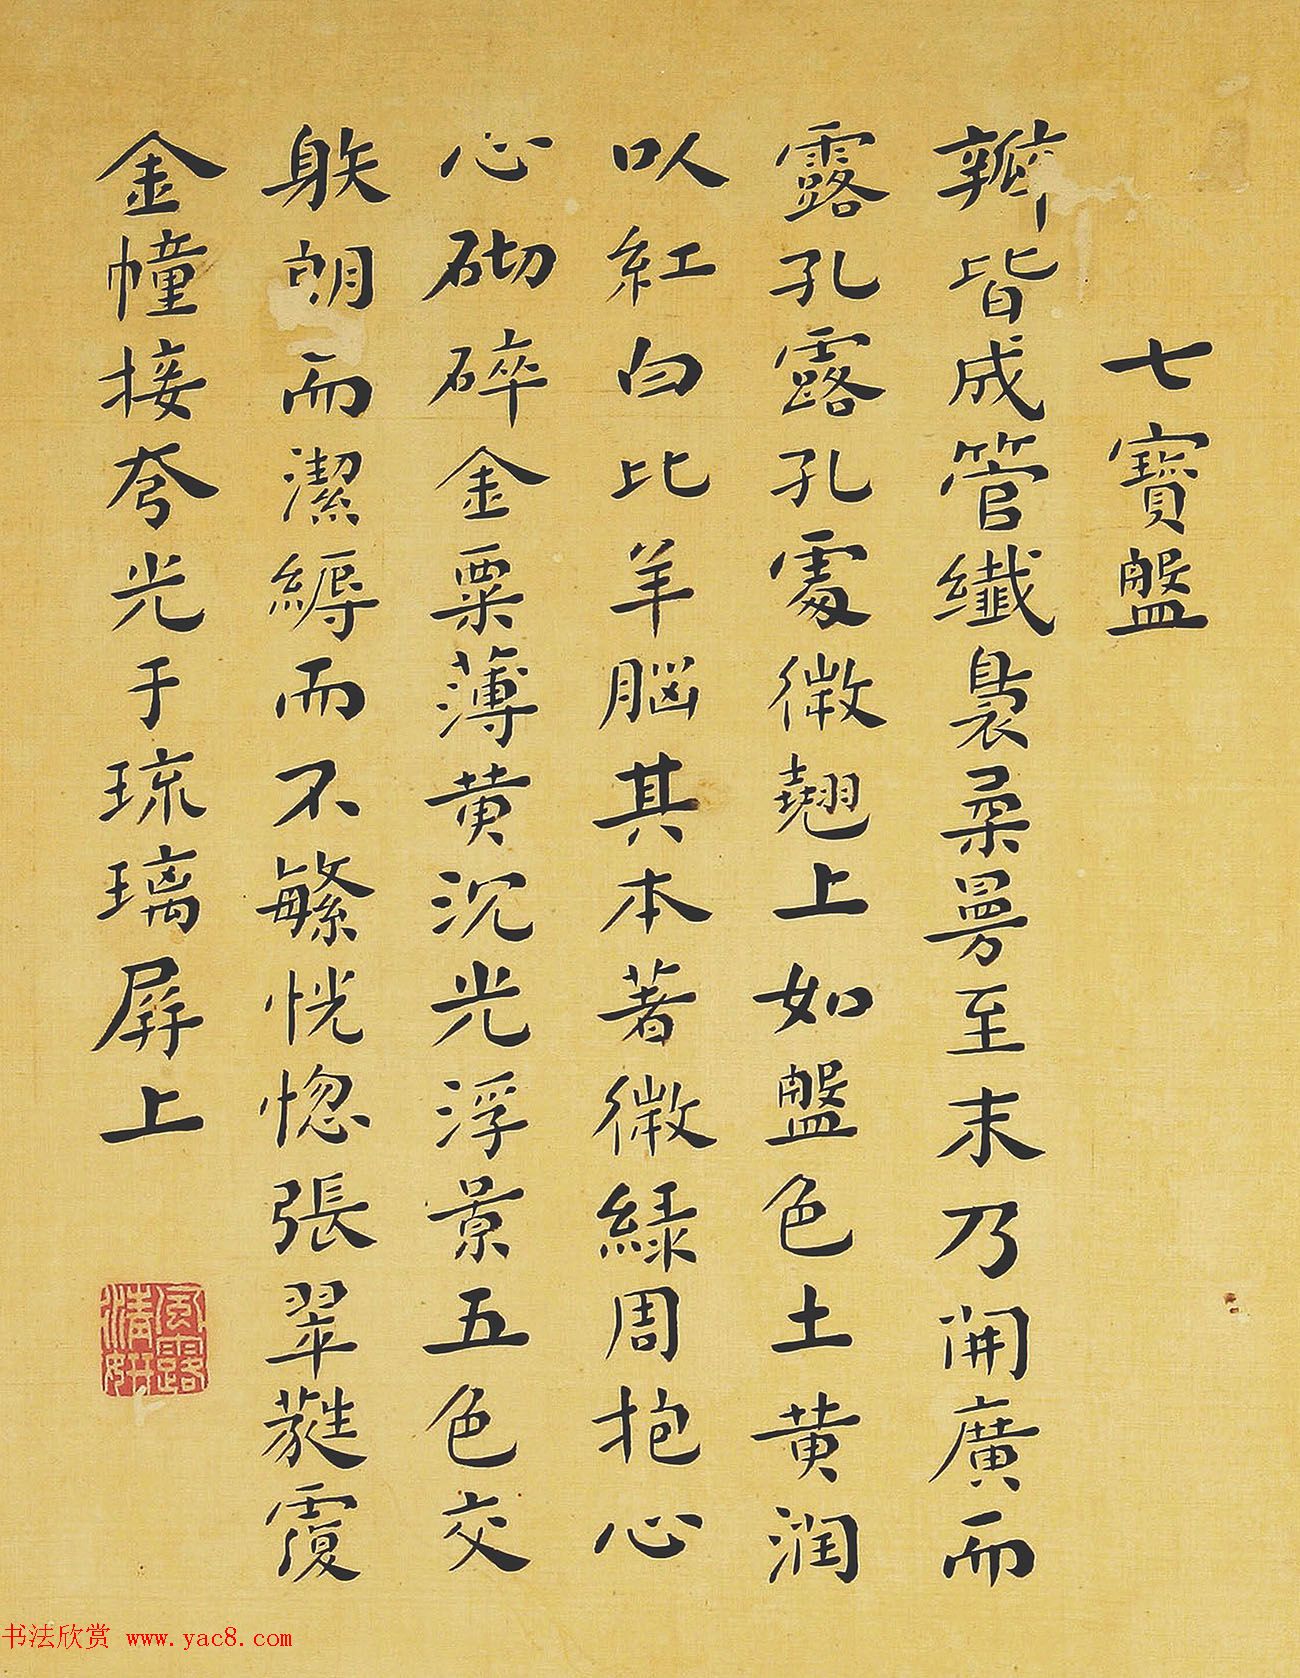 七寶盤
瓣皆成管纖裊柔曼至末乃開廣而
露孔露孔處微翹上如盤色土黄润
以紅白比羊脳其本著微緑周抱心
心砌碎金粟薄黄沉光浮景五色交
朗而潔縟而不繁恍惚張翠蕤覆
金幢接夸光于琉璃屏上
書法欣赏 www.yac8.com